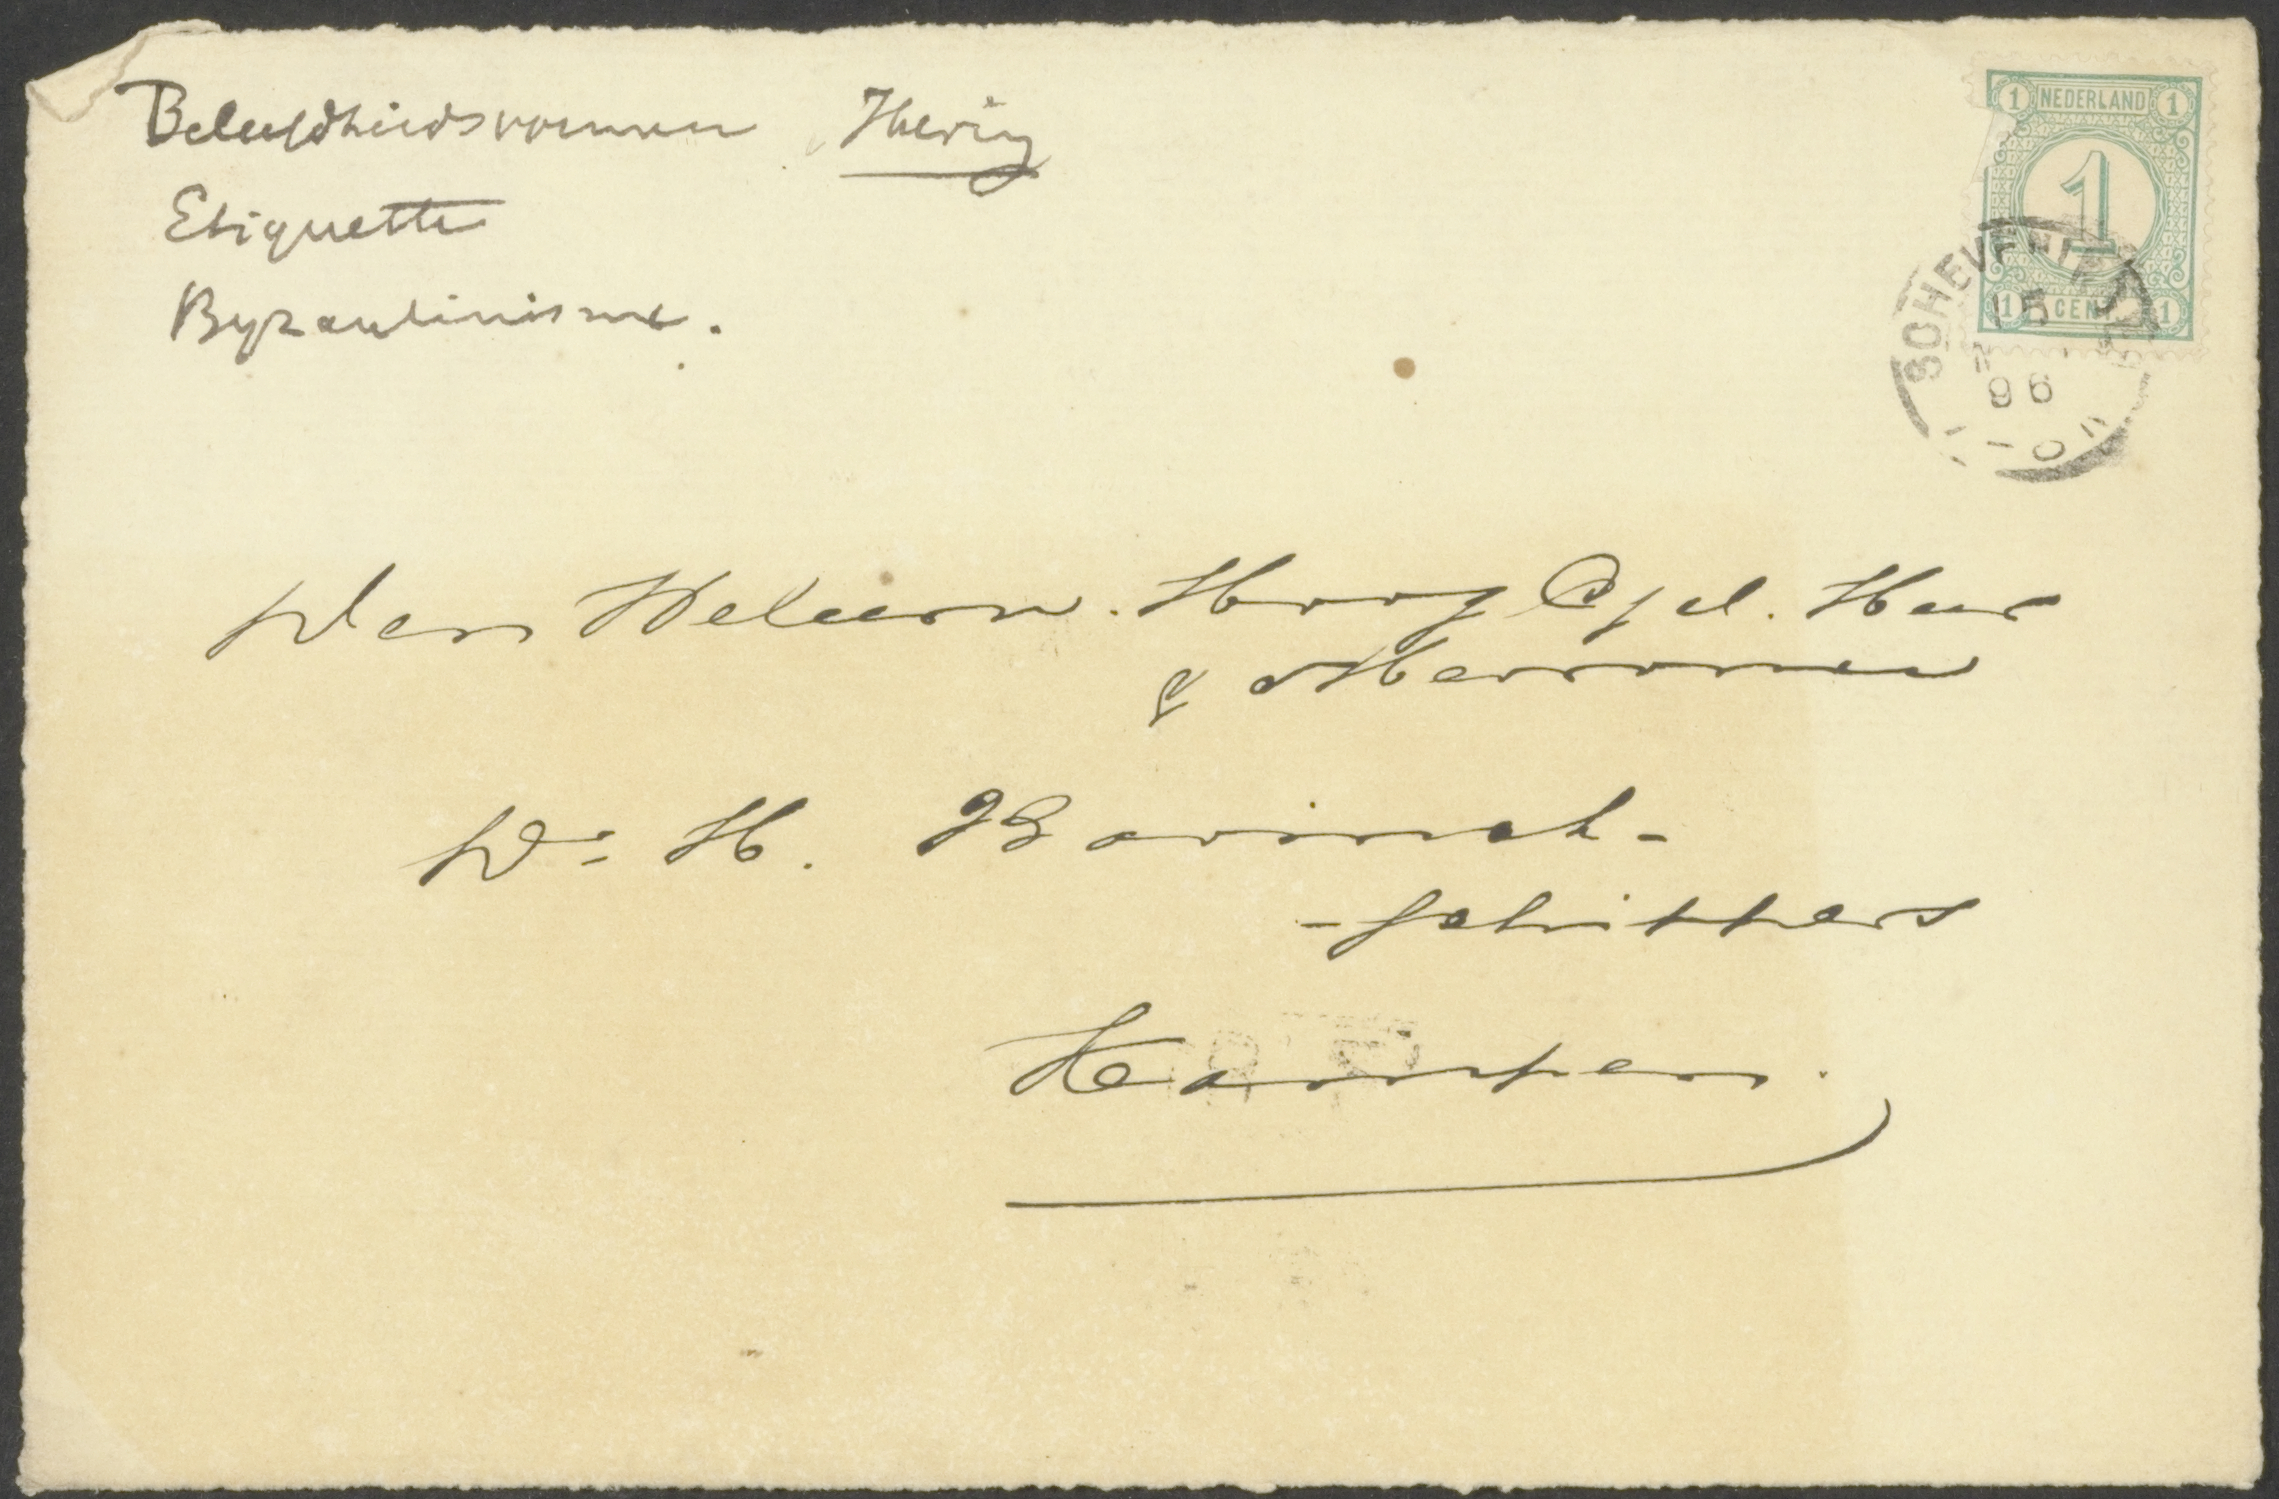 Beleefdheidsvormen Ihering
Etiquette
Byzantinisme.
1 NEDERLAND 1
1
1 CENT 1
SCHEVENINGEN
15
96
Den Weleerw. Hoog Gel. Heer
& Mevrouw
Dr H. Bavinck-
-Schippers
Kampen.